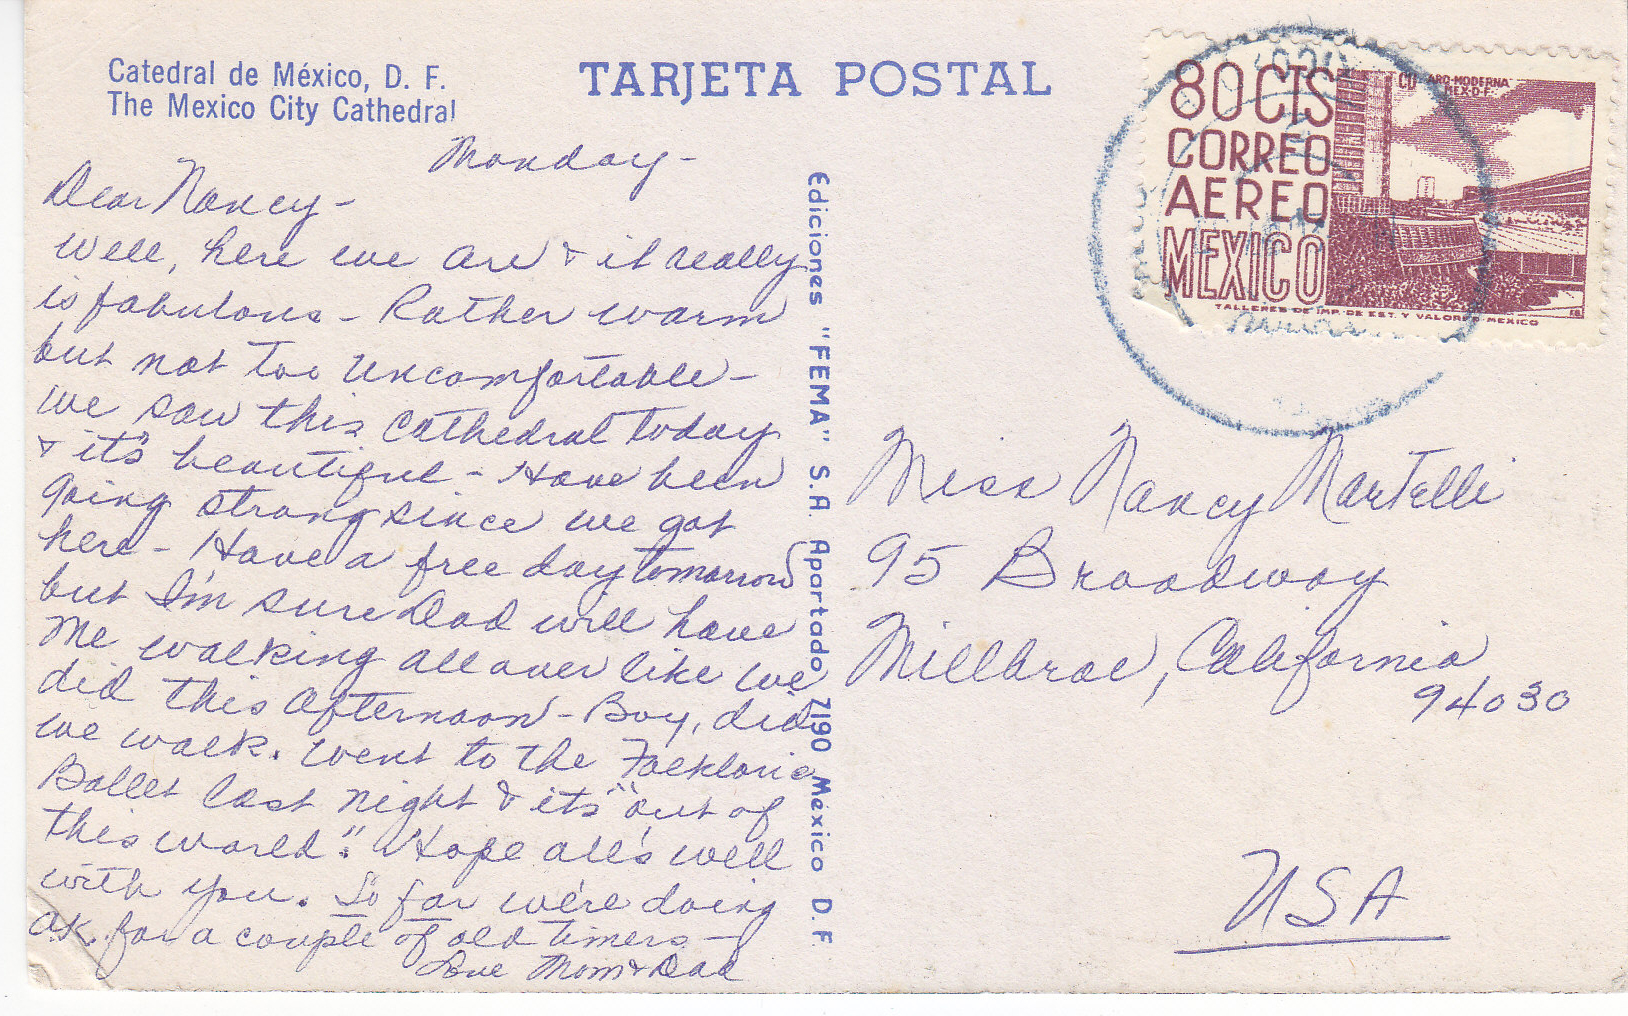 Catedral de México, D. F.
The Mexico City Cathedral
TARJETA POSTAL
Monday -
Dear Nancy -
Well, here we are & it really
is fabulous - Rather warm
but not too uncomfortable -
we saw this cathedral today
& it's beautiful - Have been
going strong since we got
here - Have a free day tomorrow
but I'm sure Dad will have
me walking all over like we
did this afternoon - Boy, did
we walk. Went to the Folkloric
Ballet last night & its "out of
this world". Hope all's well
with you. So far we're doing
ok. for a couple of old timers -
Love Mom & Dad
Ediciones "FEMA" S.A. Apartado 7190 México D. F.
80 CTS
CORREO
AEREO
MEXICO
ARQ-MODERNA
MEX-D-F-
TALLERES DE IMP. DE EST. Y VALORES-MEXICO
Miss Nancy Martelli
95 Broadway
Millbrae, California
94030
USA